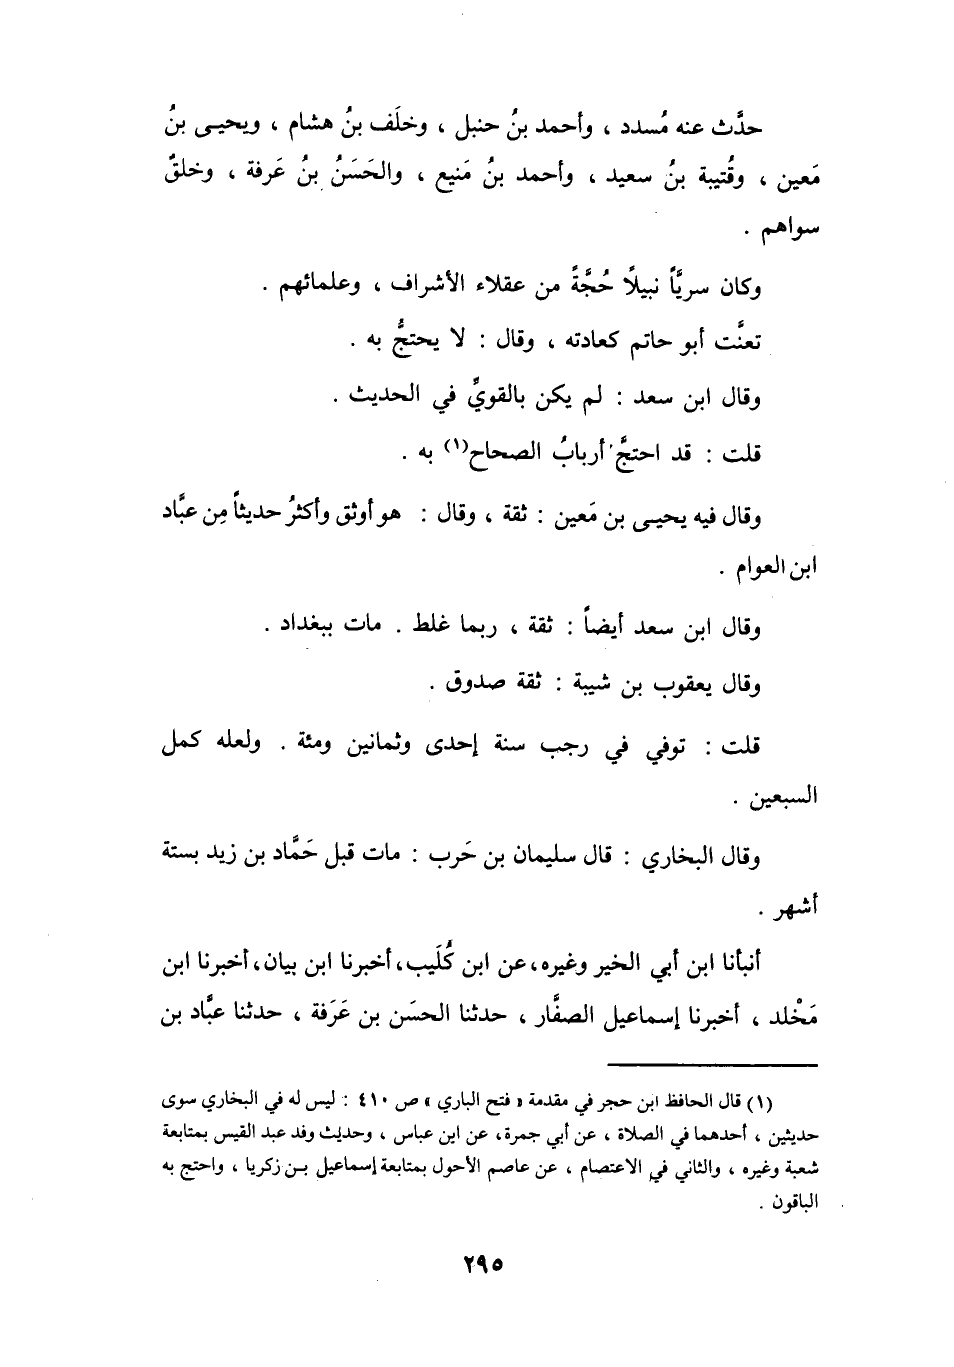 حدَّث عنه مُسدد ، وأحمد بنُ حنبل ، وخلَف بنُ هشام ، ويحيـى بنُ
مَعين ، وقُتيبة بنُ سعيد ، وأحمد بنُ مَنيع ، والحَسَنُ بنُ عَرفة ، وخلقٌ
سواهم .
وكان سريَّاً نبيلًا حُجَّةً من عقلاء الأشراف ، وعلمائهم .
تعنَّت أبو حاتم كعادته ، وقال : لا يحتجُّ به .
وقال ابن سعد : لم يكن بالقويِّ في الحديث .
قلت : قد احتجَّ أربابُ الصحاح(١) به .
وقال فيه يحيـى بن مَعين : ثقة ، وقال : هو أوثق وأكثرُ حديثاً مِن عبَّاد
ابن العوام .
وقال ابن سعد أيضاً : ثقة ، ربما غلط . مات ببغداد .
وقال يعقوب بن شيبة : ثقة صدوق .
قلت : توفي في رجب سنة إحدى وثمانين ومئة . ولعله كمل
السبعين .
وقال البخاري : قال سليمان بن حَرب : مات قبل حَمَّاد بن زيد بستة
أشهر .
أنبأنا ابن أبي الخير وغيره، عن ابن كُلَيب، أخبرنا ابن بيان، أخبرنا ابن
مَخْلد ، أخبرنا إسماعيل الصفَّار ، حدثنا الحسَن بن عَرَفة ، حدثنا عبَّاد بن
(١) قال الحافظ ابن حجر في مقدمة « فتح الباري » ص ٤١٠ : ليس له في البخاري سوى
حديثين ، أحدهما في الصلاة ، عن أبي جمرة، عن ابن عباس ، وحديث وفد عبد القيس بمتابعة
شعبة وغيره ، والثاني في الاعتصام ، عن عاصم الأحول بمتابعة إسماعيل بـن زكريا ، واحتج به
الباقون .
٢٩٥